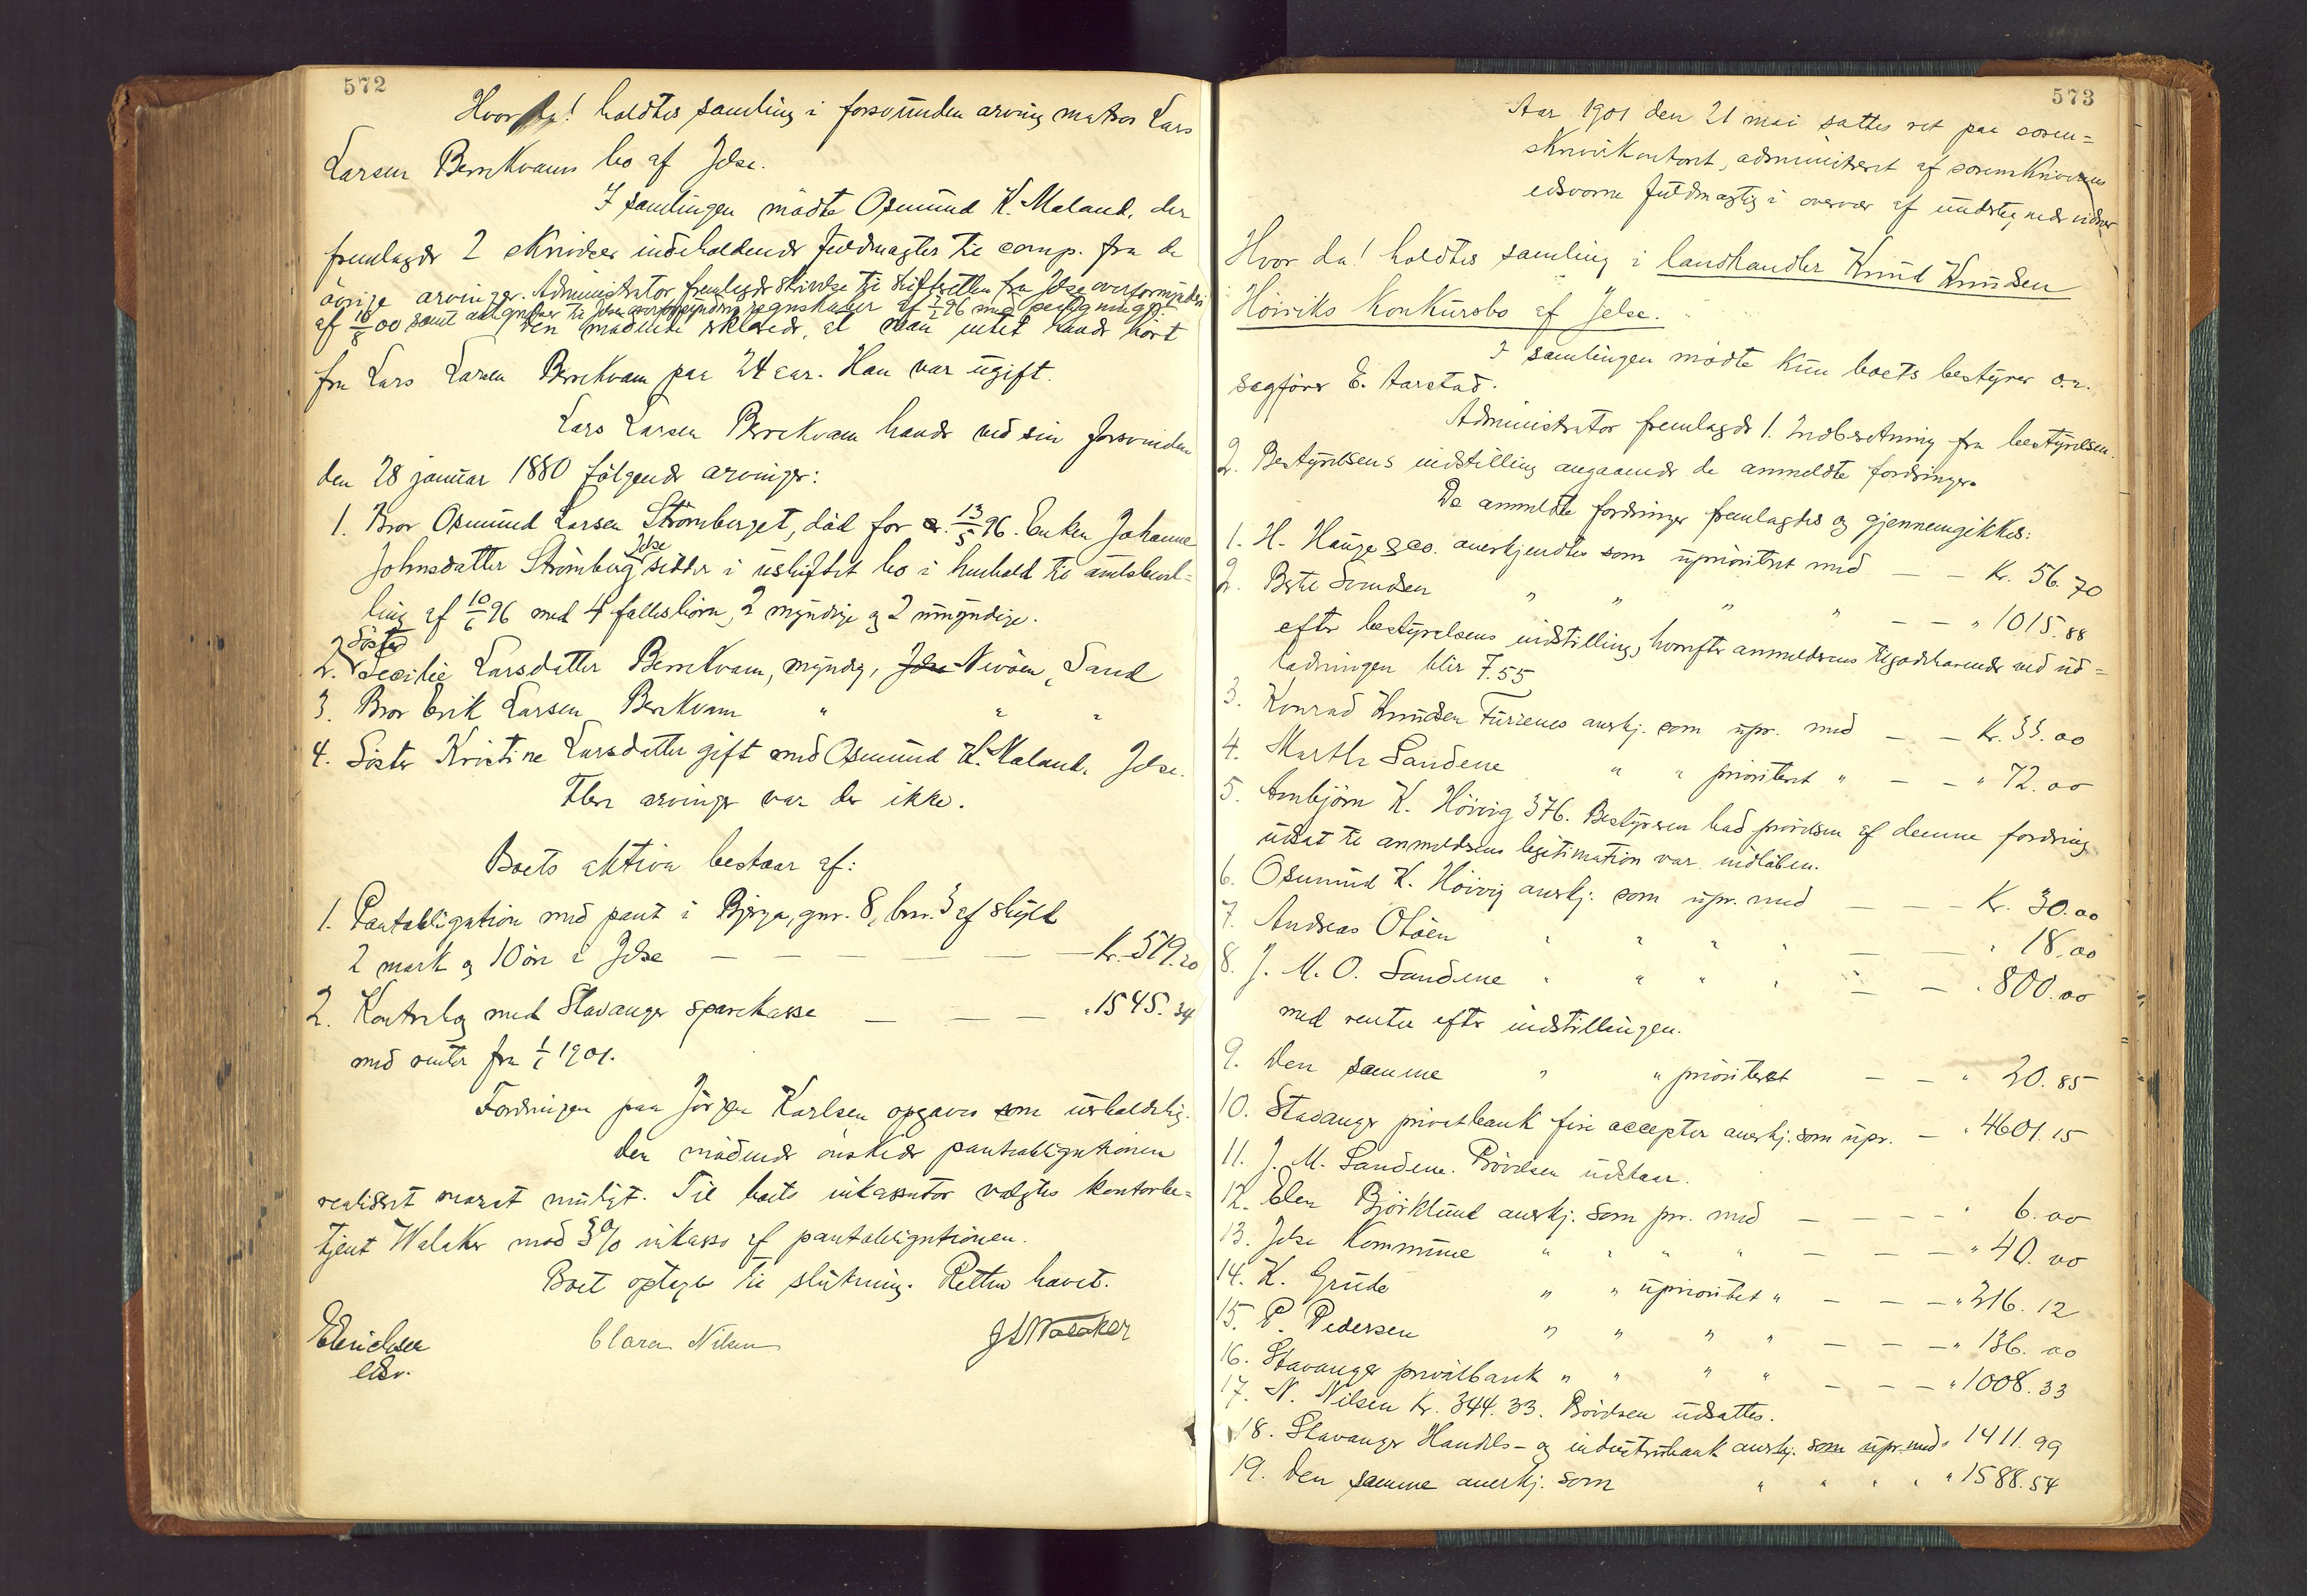 572
Hvor da! holdtes samling i forsvunden arving matros Lars
Larsen Berrekvams bo af Jelse.
I samlingen mødte Osmund K. Maland, der
fremlagde 2 skrivelser indeholdende fuldmagter til comp. fra de
øvrige arvinger. Administrator fremlagde skrivelse til skifteretten fra Jelse overformynderi
af 18/8 00 samt af 96 med
den mødende erklærede, at man intet havde hørt
fra Lars Larsen Berrekvam paa 24 aar. Han var ugift.
Lars Larsen Berrekvam havde ved sin forsvinden
den 28 januar 1880 følgende arvinger:
1. Bror Osmund Larsen Strömberget, død før 13/5 96. Enken Johanne
Johnsdatter Strömberg Jelse sidder i uskiftet bo i henhold til amtsbevil=
ling af 10/6 96 med 4 fællesbörn, 2 myndige og 2 umyndige.
2. Søster Cecilie Larsdatter Berrekvam, myndig, Jelse Nivöen, Sand
3. Bror Erik Larsen Berekvam " " "
4. Söster Kristine Larsdatter gift med Osmund K. Maland, Jelse.
Flere arvinger var der ikke.
Boets aktiva bestaar af:
1. Pantobligation med pant i Bjerga, gnr. 8, brn. 3 af skyld
2 mark og 10 öre i Jelse — — — — — — Kr. 519.20
2. Kontrabog med Stavanger sparekasse — — — " 1545.34
med renter fra 1/1 1901.
Fordringen paa Jörgen Karlsen opgaves som uerholdelig.
Den mødende önskede pantobligationen
realiseret snarest muligt. Til boets inkassator valgtes kontorbe=
tjent Walaker mod 3% inkasso af pantobligationen.
Boet optages til slutning. Retten hævet.
Erichsen Clara Nilsen J S Walaker
edsv.
573
Aar 1901 den 21 mai sattes ret paa soren=
skriverkontoret, administreret af sorenskriverens
edsvorne fuldmægtig i overvær af undertegnede vidner
Hvor da! holdtes samling i landhandler Knud Knudsen
Höiviks konkursbo af Jelse.
I samlingen mødte kun boets bestyrer o.r.
sagförer E. Aarstad.
Administrator fremlagde 1. Indberetning fra bestyrelsen.
2. Bestyrelsens indstilling angaaende de anmeldte fordringer.
De anmeldte fordringer fremlagdes og gjennemgikkes:
1. H. Hauge & co. anerkjendtes som uprioriteret med — — Kr. 56.70
2. Berte " " " " — — " 1015.88
efter bestyrelsens indstilling, hvorefter anmelderens tilgodehavende ved ud=
lodningen blir 7.55
3. Konrad Knudsen Furenes anerkj. som upr. med — — Kr. 33.00
4. Marthe Sandene " " prioriteret " — — " 72.00
5. Arnbjörn K. Höivig 376. Bestyreren bad prövelsen af denne fordring
udsat til anmelderens legitimation var indlöben.
6. Osmund K. Höivig anerkj. som upr. med — — — Kr. 30.00
7. Andreas Otöen " " " " — — " 18.00
8. J. M. O. Sandene " " " " — — " 800.00
med renter efter indstillingen.
9. Den samme " " prioriteret — — " 20.85
10. Stavanger privatbank fire accepter anerkj. som upr. — " 4601.15
11. J. M. Sandene. Prövelsen udstaar.
12. Elen Björklund anerkj. som pr. med — — — — " 6.00
13. Jelse Kommune " " " " — — — " 40.00
14. K. Grude " " uprioritet " — — — " 216.12
15. P. Pedersen " " " " — — — " 136.00
16. Stavanger privatbank " " " " — — — " 1008.33
17. N. Nilsen Kr. 344.33. Prövelsen udsattes.
18. Stavanger Handels- og industribank anerkj. som upr. med " 1411.99
19. Den samme anerkj. som " " " " " 1588.54